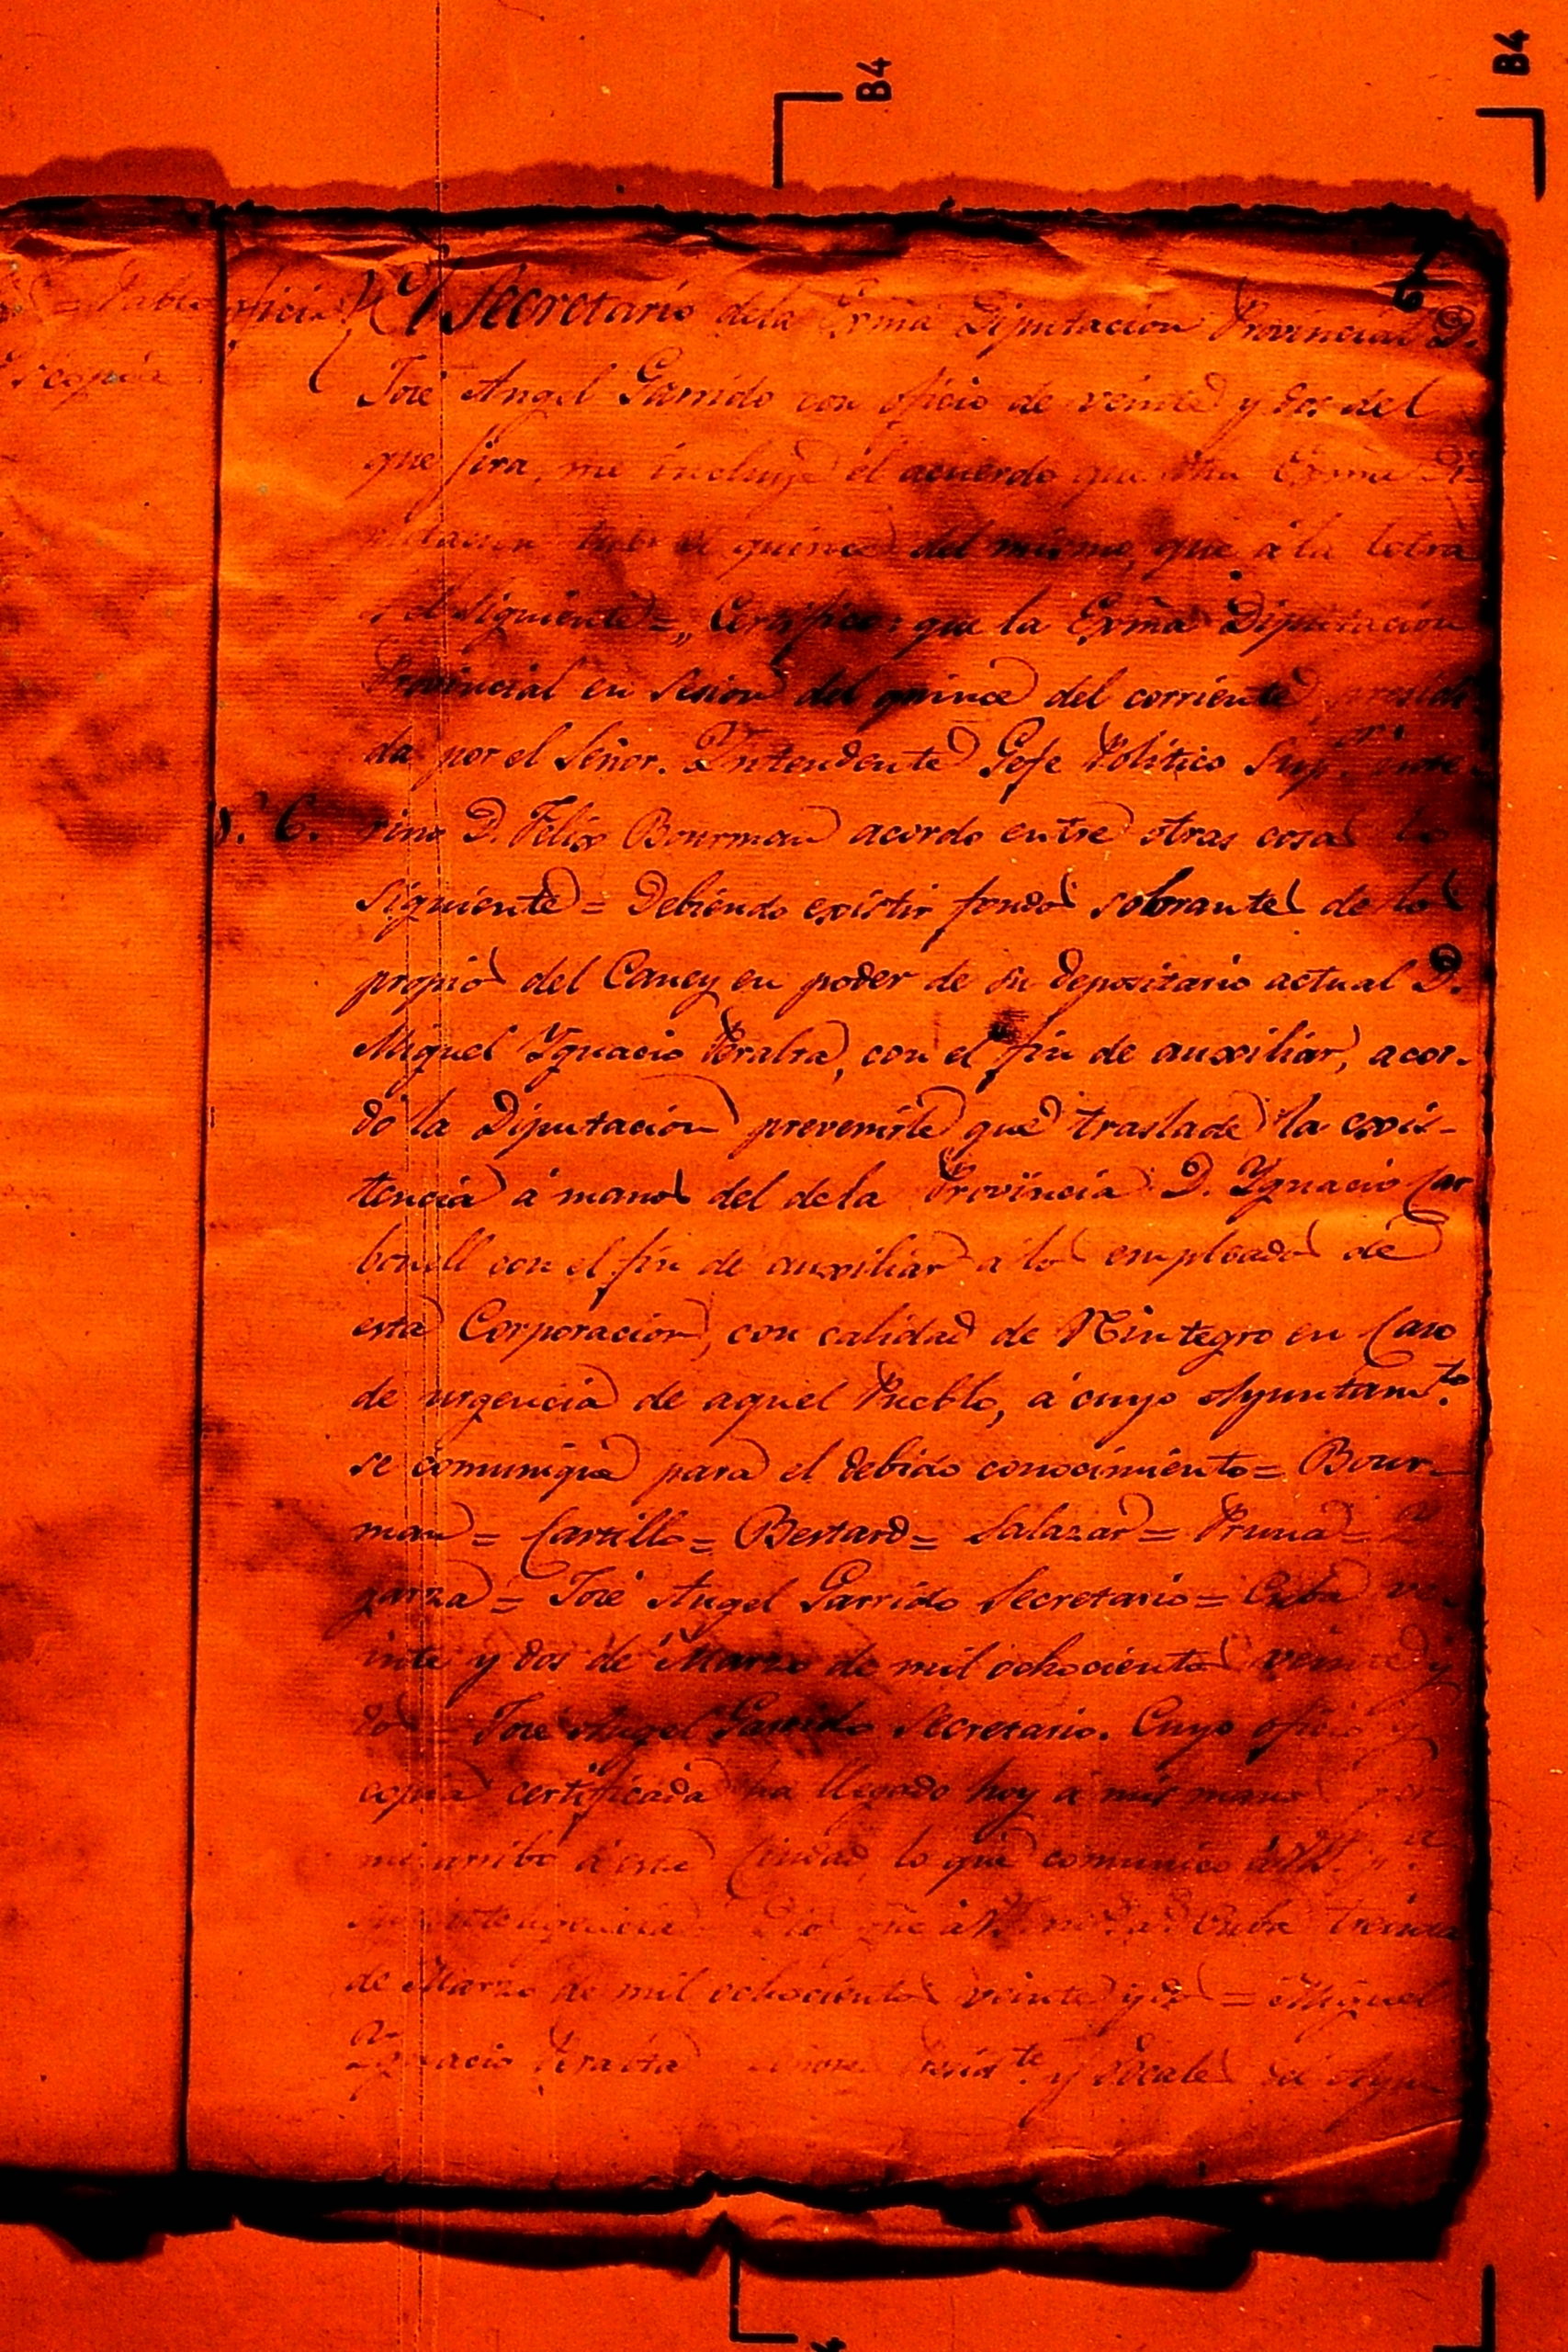 B4
B4
6
El Secretario dela Exma Diputacion Provincial D.
José Angel Garrido con oficio de veinte y dos del
que jira, me incluye el acuerdo que Exma
quince del mismo, que á la letra
siguiente =,, Certifico: que la Exma Diputacion
Provincial en sesion del quince del corriente
da por el Señor. Intendente Gefe Politico
rino D. Felix Bourman acordo entre otras cosas lo
siguiente = Debiendo existir fondos sobrantes de los
propios del Caney en poder de su depositario actual D.
Miguel Ygnacio Peralta, con el fin de auxiliar, acor-
dó la Diputacion prevenirle que traslade la exis-
tencia á manos del dela Provincia D. Ygnacio Car
bonell con el fin de auxiliar a los empleados de
esta Corporacion, con calidad de Reintegro en Caso
de urgencia de aquel Pueblo, á cuyo Ayuntamto.
se comunique para el debido conocimiento = Bour-
man = Castillo = Bestard = Salazar = Pruna =
garza = José Angel Garrido Secretario = Cuba ve
inte y dos de Marzo de mil ochocientos veinte y
dos = José Angel Garrido Secretario. Cuyo oficio y
copia certificada ha llegado hoy á mis manos por
mi arribo á esta Ciudad, lo que comunico
su inteligencia Dios gue Cuba treinta
de Marzo de mil ochocientos veinte y dos = Miguel
Ygnacio Peralta Presidte. y Vocales del Ayun